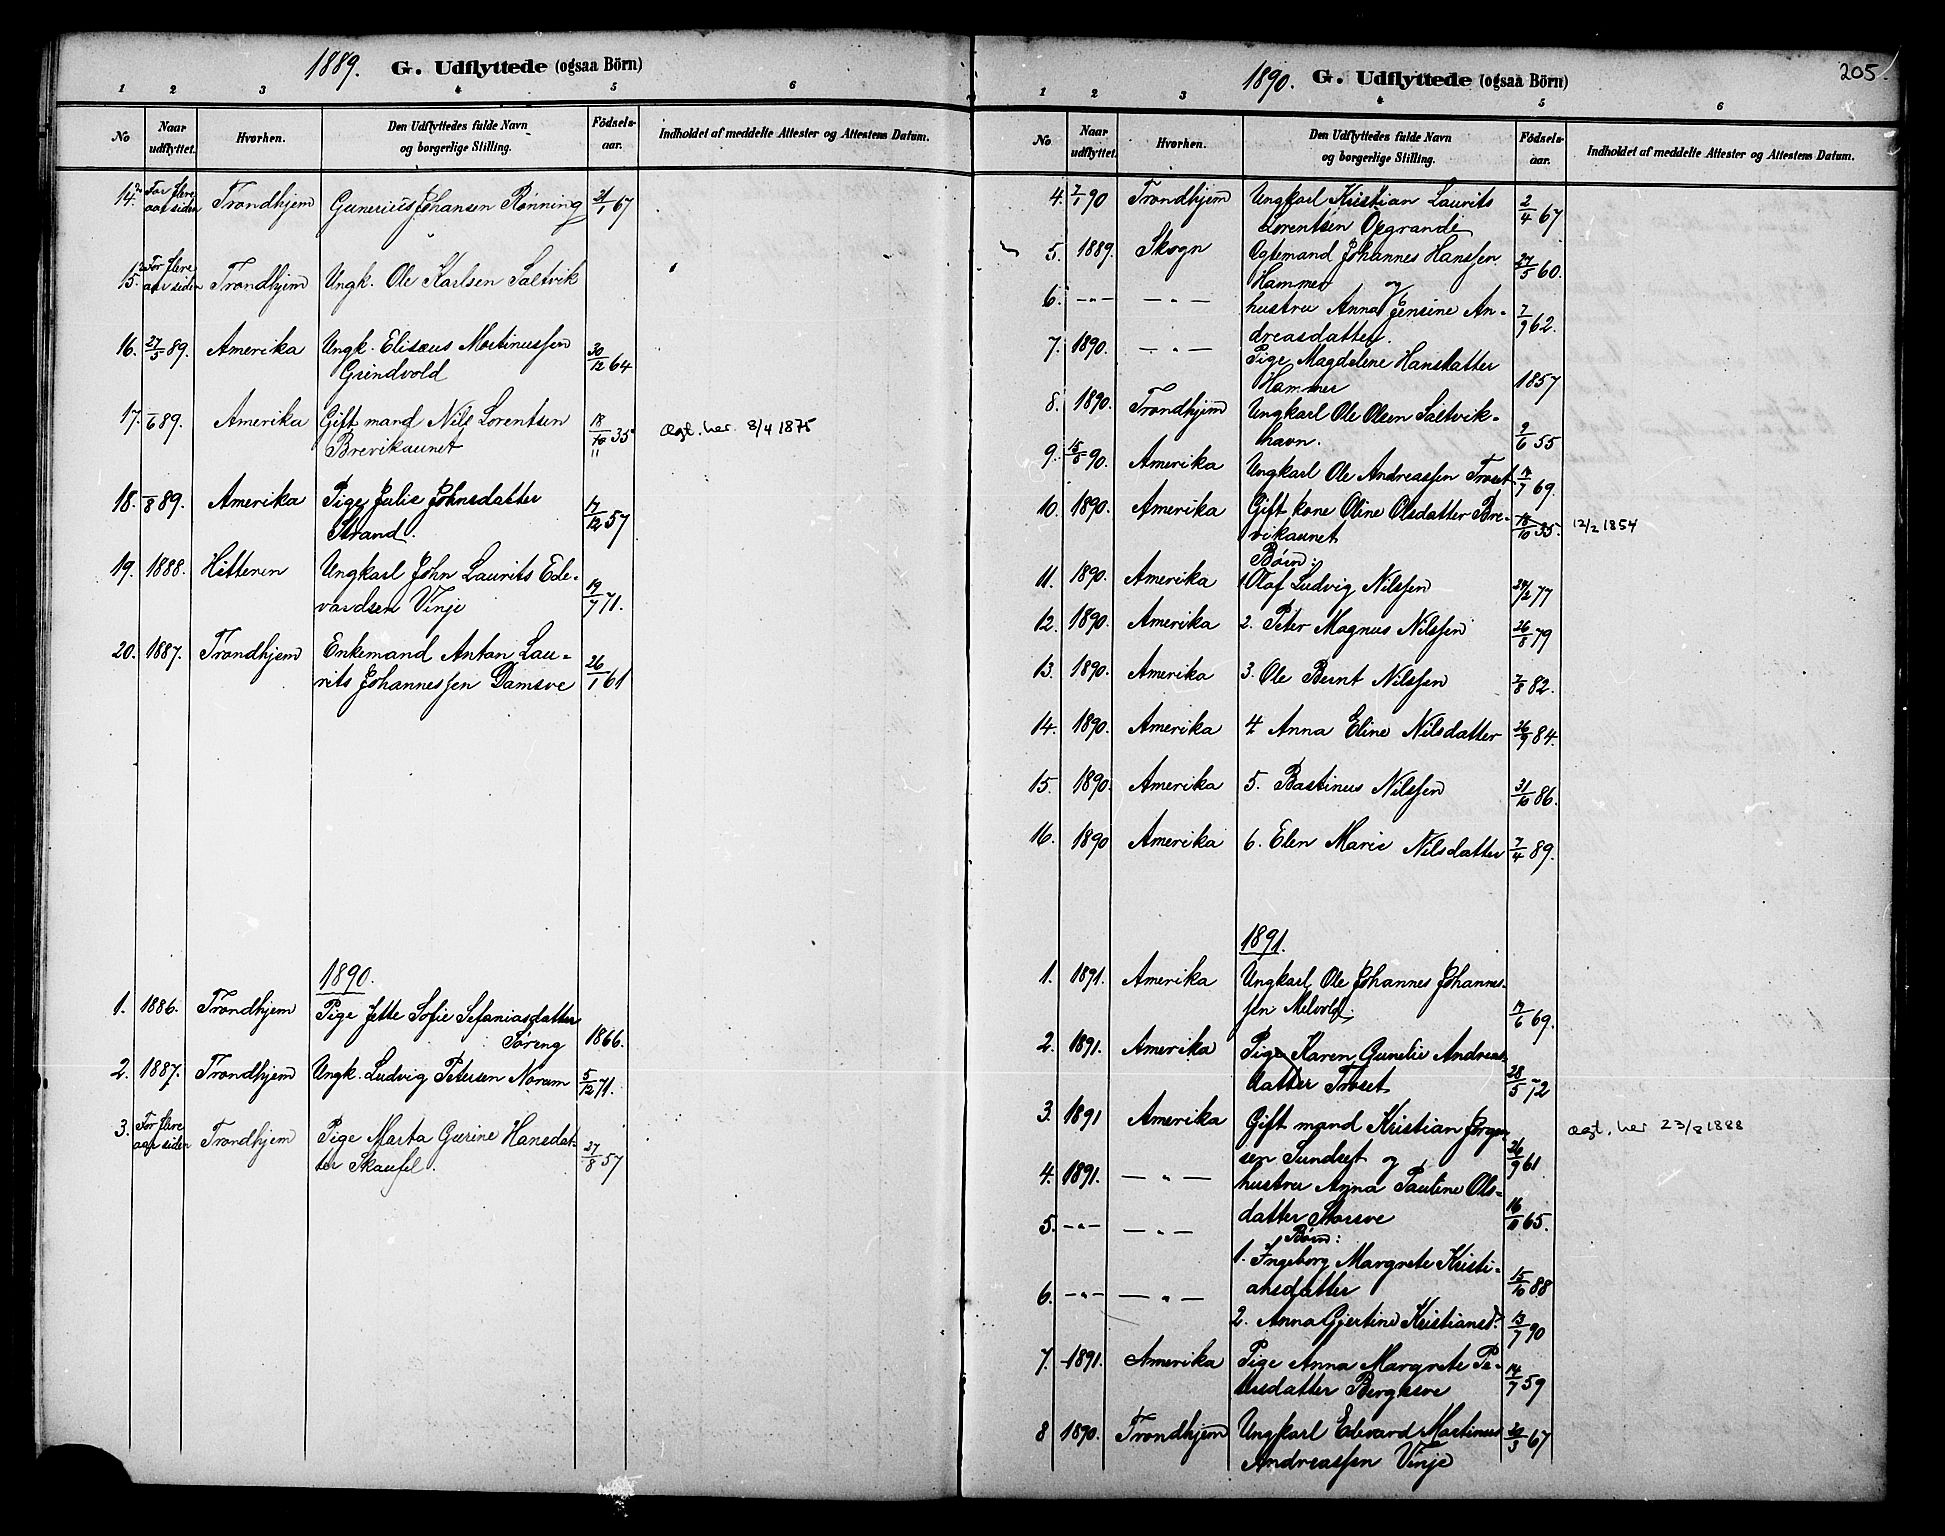 1889. G. Udflyttede (ogsaa Börn)
1 2 3 4 5 6
No Naar udflyttet. Hvorhen. Den Udflyttedes fulde Navn og borgerlige Stilling. Födsels-aar. Indholdet af meddelte Attester og Attestens Datum.
14. For flere aar siden Trondhjem Gunerius Johansen Rønning 31/1 67
15. For flere aar siden Trondhjem Ungk. Ole Karlsen Saltvik
16. 27/5 89. Amerika Ungk. Elisæus Martinussen
Grindvold 30/12 64
17. /6 89. Amerika Gift mand Nils Lorentsen
Brevikaunet 18/10 35 ægt. her 8/4 1875
11
18. /8 89. Amerika Pige Julie Johnsdatter
Strand. 17/12 57
19. 1888. Hitteren Ungkarl John Laurits Ede-
vardsen Vinje 19/7 71.
20. 1887. Trondhjem Enkemand Anton Lau-
rits Johannessen Damsve 26/1 61
1890.
1. 1886. Trondhjem Pige Jette Sofie Sefaniasdatter
Søreng 1866.
2. 1887. Trondhjem Ungk. Ludvig Petersen Norum 5/12 71.
3. For flere aar siden Trondhjem Pige Marta Gurine Hansdat-
ter Skaufel. 27/8 57
205.
1890. G. Udflyttede (ogsaa Börn)
1 2 3 4 5 6
No Naar udflyttet. Hvorhen. Den Udflyttedes fulde Navn og borgerlige Stilling. Födsels-aar. Indholdet af meddelte Attester og Attestens Datum.
4. 7/1 90 Trondhjem Ungkarl Kristian Laurits
Lorentsen Opgrande 2/4 67
5. 1889. Skogn Egtemand Johannes Hanssen
Hammer og 27/5 60.
6. -"- -"- hustru Anna Jensine An-
dreasdatter. 7/9 62.
7. 1890. -"- Pige Magdelene Hansdatter
Hammer 1857
8. 1890. Trondhjem Ungkarl Ole Olsen Saltvik-
havn. 9/6 55
9. 15/5 90. Amerika Ungkarl Ole Andreassen Trøset 17/7 69.
10. 1890. Amerika Gift kone Oline Olsdatter Bre-
vikaunet 18/10 35. 12/2 1854
Børn:
11. 1890. Amerika 1. Olaf Ludvig Nilssen 24/2 77
12. 1890. Amerika 2. Peter Magnus Nilssen 26/8 79
13. 1890. Amerika 3. Ole Bernt Nilssen 7/8 82.
14. 1890. Amerika 4 Anna Eline Nilsdatter 26/9 84.
15. 1890. Amerika 5. Bastinus Nilssen 31/10 86.
16. 1890 Amerika 6. Elen Marie Nilsdatter 7/4 89.
1891.
1. 1891. Amerika Ungkarl Ole Johannes Johannes-
sen Melvold. 17/6 69.
2. 1891. Amerika Pige Karen Gunelie Andreas-
datter Trøset 28/5 72
3. 1891 Amerika Gift mand Kristian Jørgen-
sen Sundset og 26/9 61. ægt. her 23/8 1888
4. 1891. -"- hustru Anna Pauline Ols-
datter Storsve 16/11 65.
Børn:
5. -"- -"- 1. Ingeborg Margrete Kristi-
ansdatter 15/10 88
6. -"- -"- 2. Anna Gjertine Kristiansd. 13/7 90
7. 1891. Amerika Pige Anna Margrete Pe-
tersdatter Bergksve 14/7 59
8 1890. Trondhjem Ungkarl Edevard Martinus
Andreassen Vinje 20/3 67